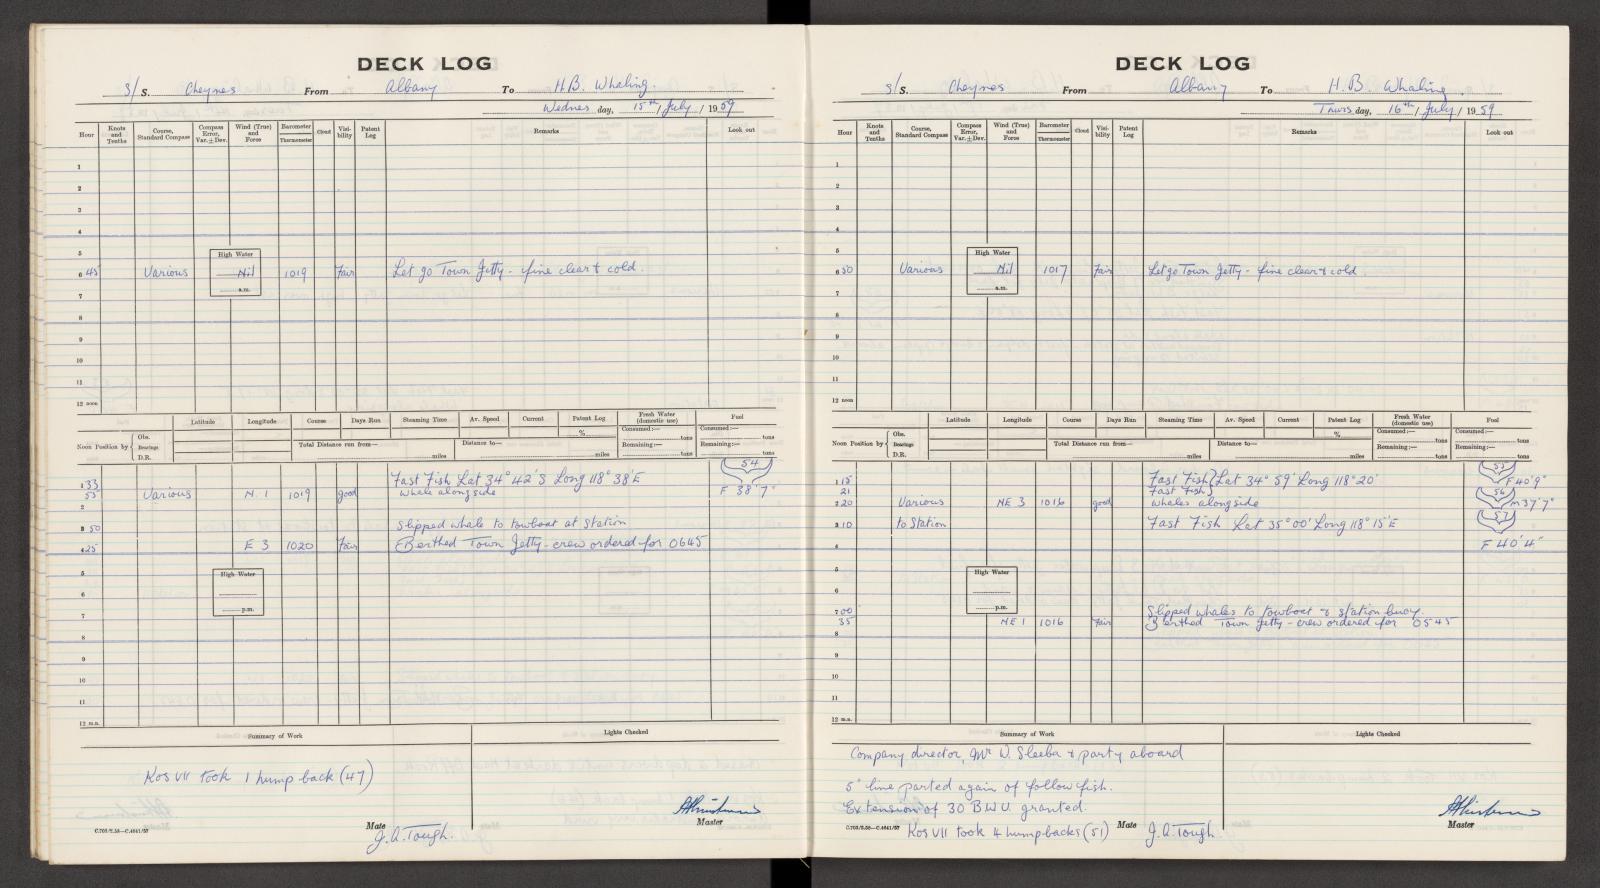 DECK LOG
S/S. Cheynes From Albany To H.B. Whaling.
Wednes day, 15th / July / 1959
Hour Knots and Tenths Course, Standard Compass Compass Error, Var. ± Dev. Wind (True) and Force Barometer Thermometer Cloud Visibility Patent Log Remarks Look out
1
2
3
4
5 High Water
6 45 Various Nil 1019 Fair Let go Town Jetty - fine clear & cold.
a.m.
7
8
9
10
11
12 noon
Latitude Longitude Course Days Run Steaming Time Av. Speed Current Patent Log Fresh Water (domestic use) Fuel
% Consumed:— tons Consumed:— tons
Noon Position by Obs. Bearings D.R. Total Distance run from— miles Distance to— miles Remaining:— tons Remaining:— tons
54
1 33 Fast Fish Lat 34° 42'S Long 118° 38'E
55 Various N. 1 1019 good Whale alongside F 38'7"
2
3 50 Slipped whale to towboat at Station
4 25 E 3 1020 Fair Berthed Town Jetty - crew ordered for 0645
5 High Water
6
7 p.m.
8
9
10
11
12 m.n.
Summary of Work Lights Checked
Kos VII took 1 humpback (47)
Master
C.702/2.58—C.4641/57 Mate J.A. Tough.
DECK LOG
S/S. Cheynes From Albany To H.B. Whaling.
Thurs day, 16th / July / 1959
Hour Knots and Tenths Course, Standard Compass Compass Error, Var. ± Dev. Wind (True) and Force Barometer Thermometer Cloud Visibility Patent Log Remarks Look out
1
2
3
4
5 High Water
6 50 Various Nil 1017 Fair Let go Town Jetty - fine clear & cold
a.m.
7
8
9
10
11
12 noon
Latitude Longitude Course Days Run Steaming Time Av. Speed Current Patent Log Fresh Water (domestic use) Fuel
% Consumed:— tons Consumed:— tons
Noon Position by Obs. Bearings D.R. Total Distance run from— miles Distance to— miles Remaining:— tons Remaining:— tons
55
1 15 Fast Fish } Lat 34° 59' Long 118° 20' F 40'9"
21 Fast Fish } 56
2 20 Various NE 3 1016 good Whales alongside M 37'7"
3 10 to Station Fast Fish Lat 35° 00' Long 118° 15'E 57
4 F 40'4"
5 High Water
6
7 00 p.m. Slipped whales to towboat & station buoy.
35 NE 1 1016 Fair Berthed Town Jetty - crew ordered for 0545
8
9
10
11
12 m.n.
Summary of Work Lights Checked
Company director, Mr W. Sleeba & party aboard
5" line parted again of follow fish.
Extension of 30 B.W.U. granted.
Master
C.702/2.58—C.4641/57 Kos VII took 4 humpbacks (51) Mate J.A. Tough.